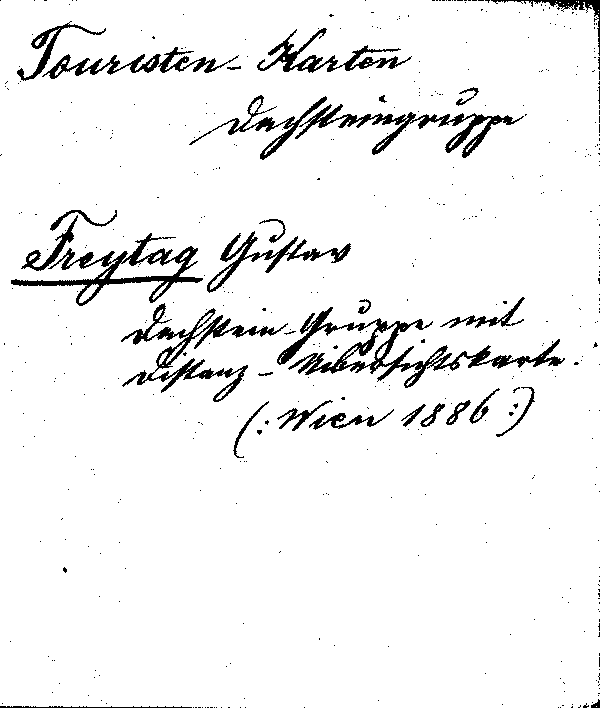 Touristen-Karten
Dachsteingruppe
Freytag Gustav
Dachstein-Gruppe mit
Distanz-Uibersichtskarte.
(: Wien 1886 :)